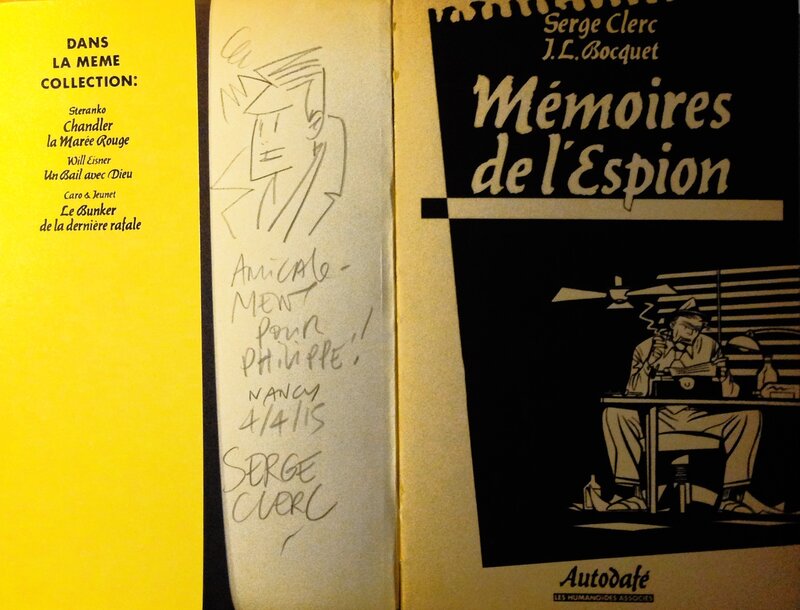 DANS
LA MEME
COLLECTION:
Steranko
Chandler
la Marée Rouge
Will Eisner
Un Bail avec Dieu
Caro & Jeunet
Le Bunker
de la dernière rafale
AMICALE-
MENT
POUR
PHILIPPE!
NANCY
4/4/15
SERGE
CLERC
Serge Clerc
J.L. Bocquet
Mémoires
de l'Espion
Autodafé
LES HUMANOÏDES ASSOCIÉS